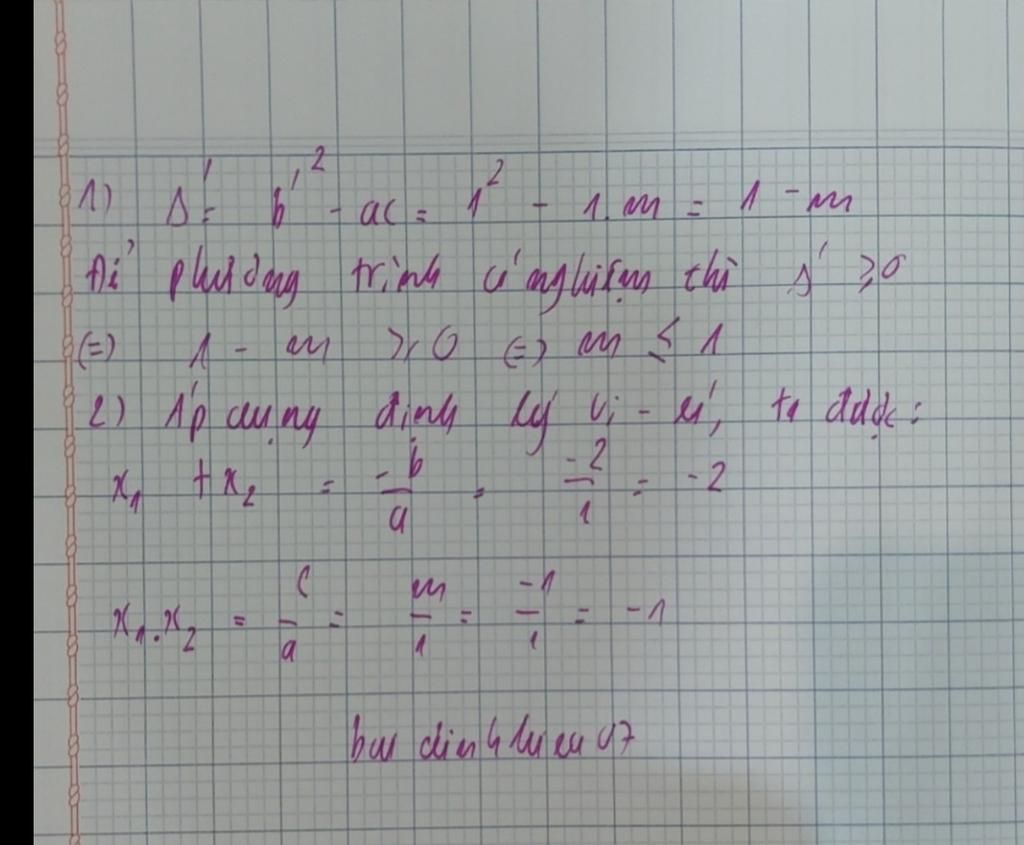 1) Δ' = b'² - ac = 1² - 1.m = 1 - m
Để phương trình có nghiệm thì Δ' ≥ 0
(=) 1 - m ≥ 0 (=) m ≤ 1
2) Áp dụng định lý Vi-ét, ta được:
x₁ + x₂ = -b/a = -2/1 = -2
x₁.x₂ = c/a = m/1 = -1/1 = -1